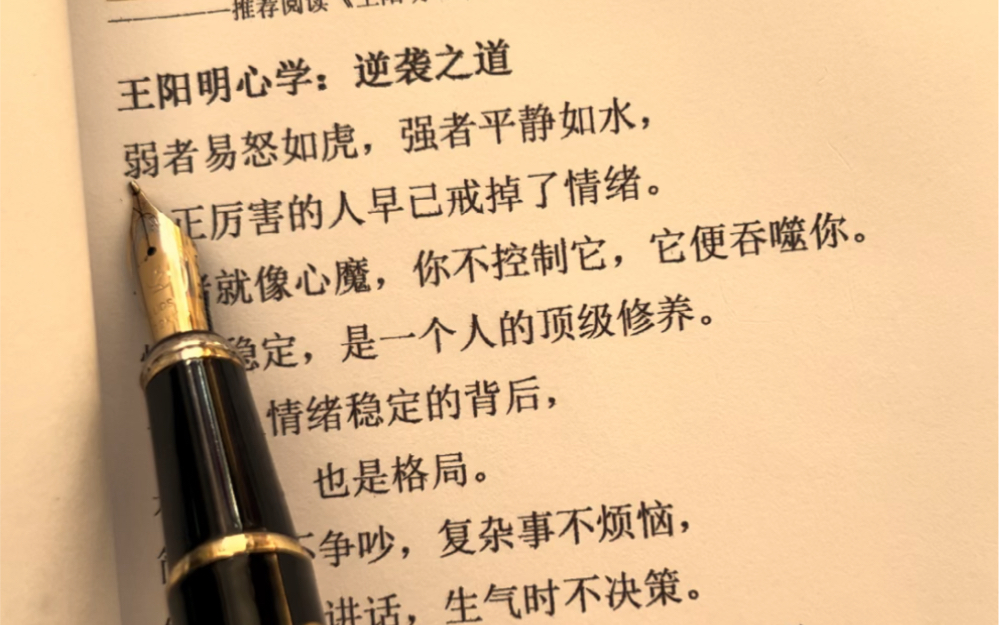 ——推荐阅读《王阳明
王阳明心学：逆袭之道
弱者易怒如虎，强者平静如水，
正厉害的人早已戒掉了情绪。
就像心魔，你不控制它，它便吞噬你。
稳定，是一个人的顶级修养。
情绪稳定的背后，
也是格局。
不争吵，复杂事不烦恼，
讲话，生气时不决策。